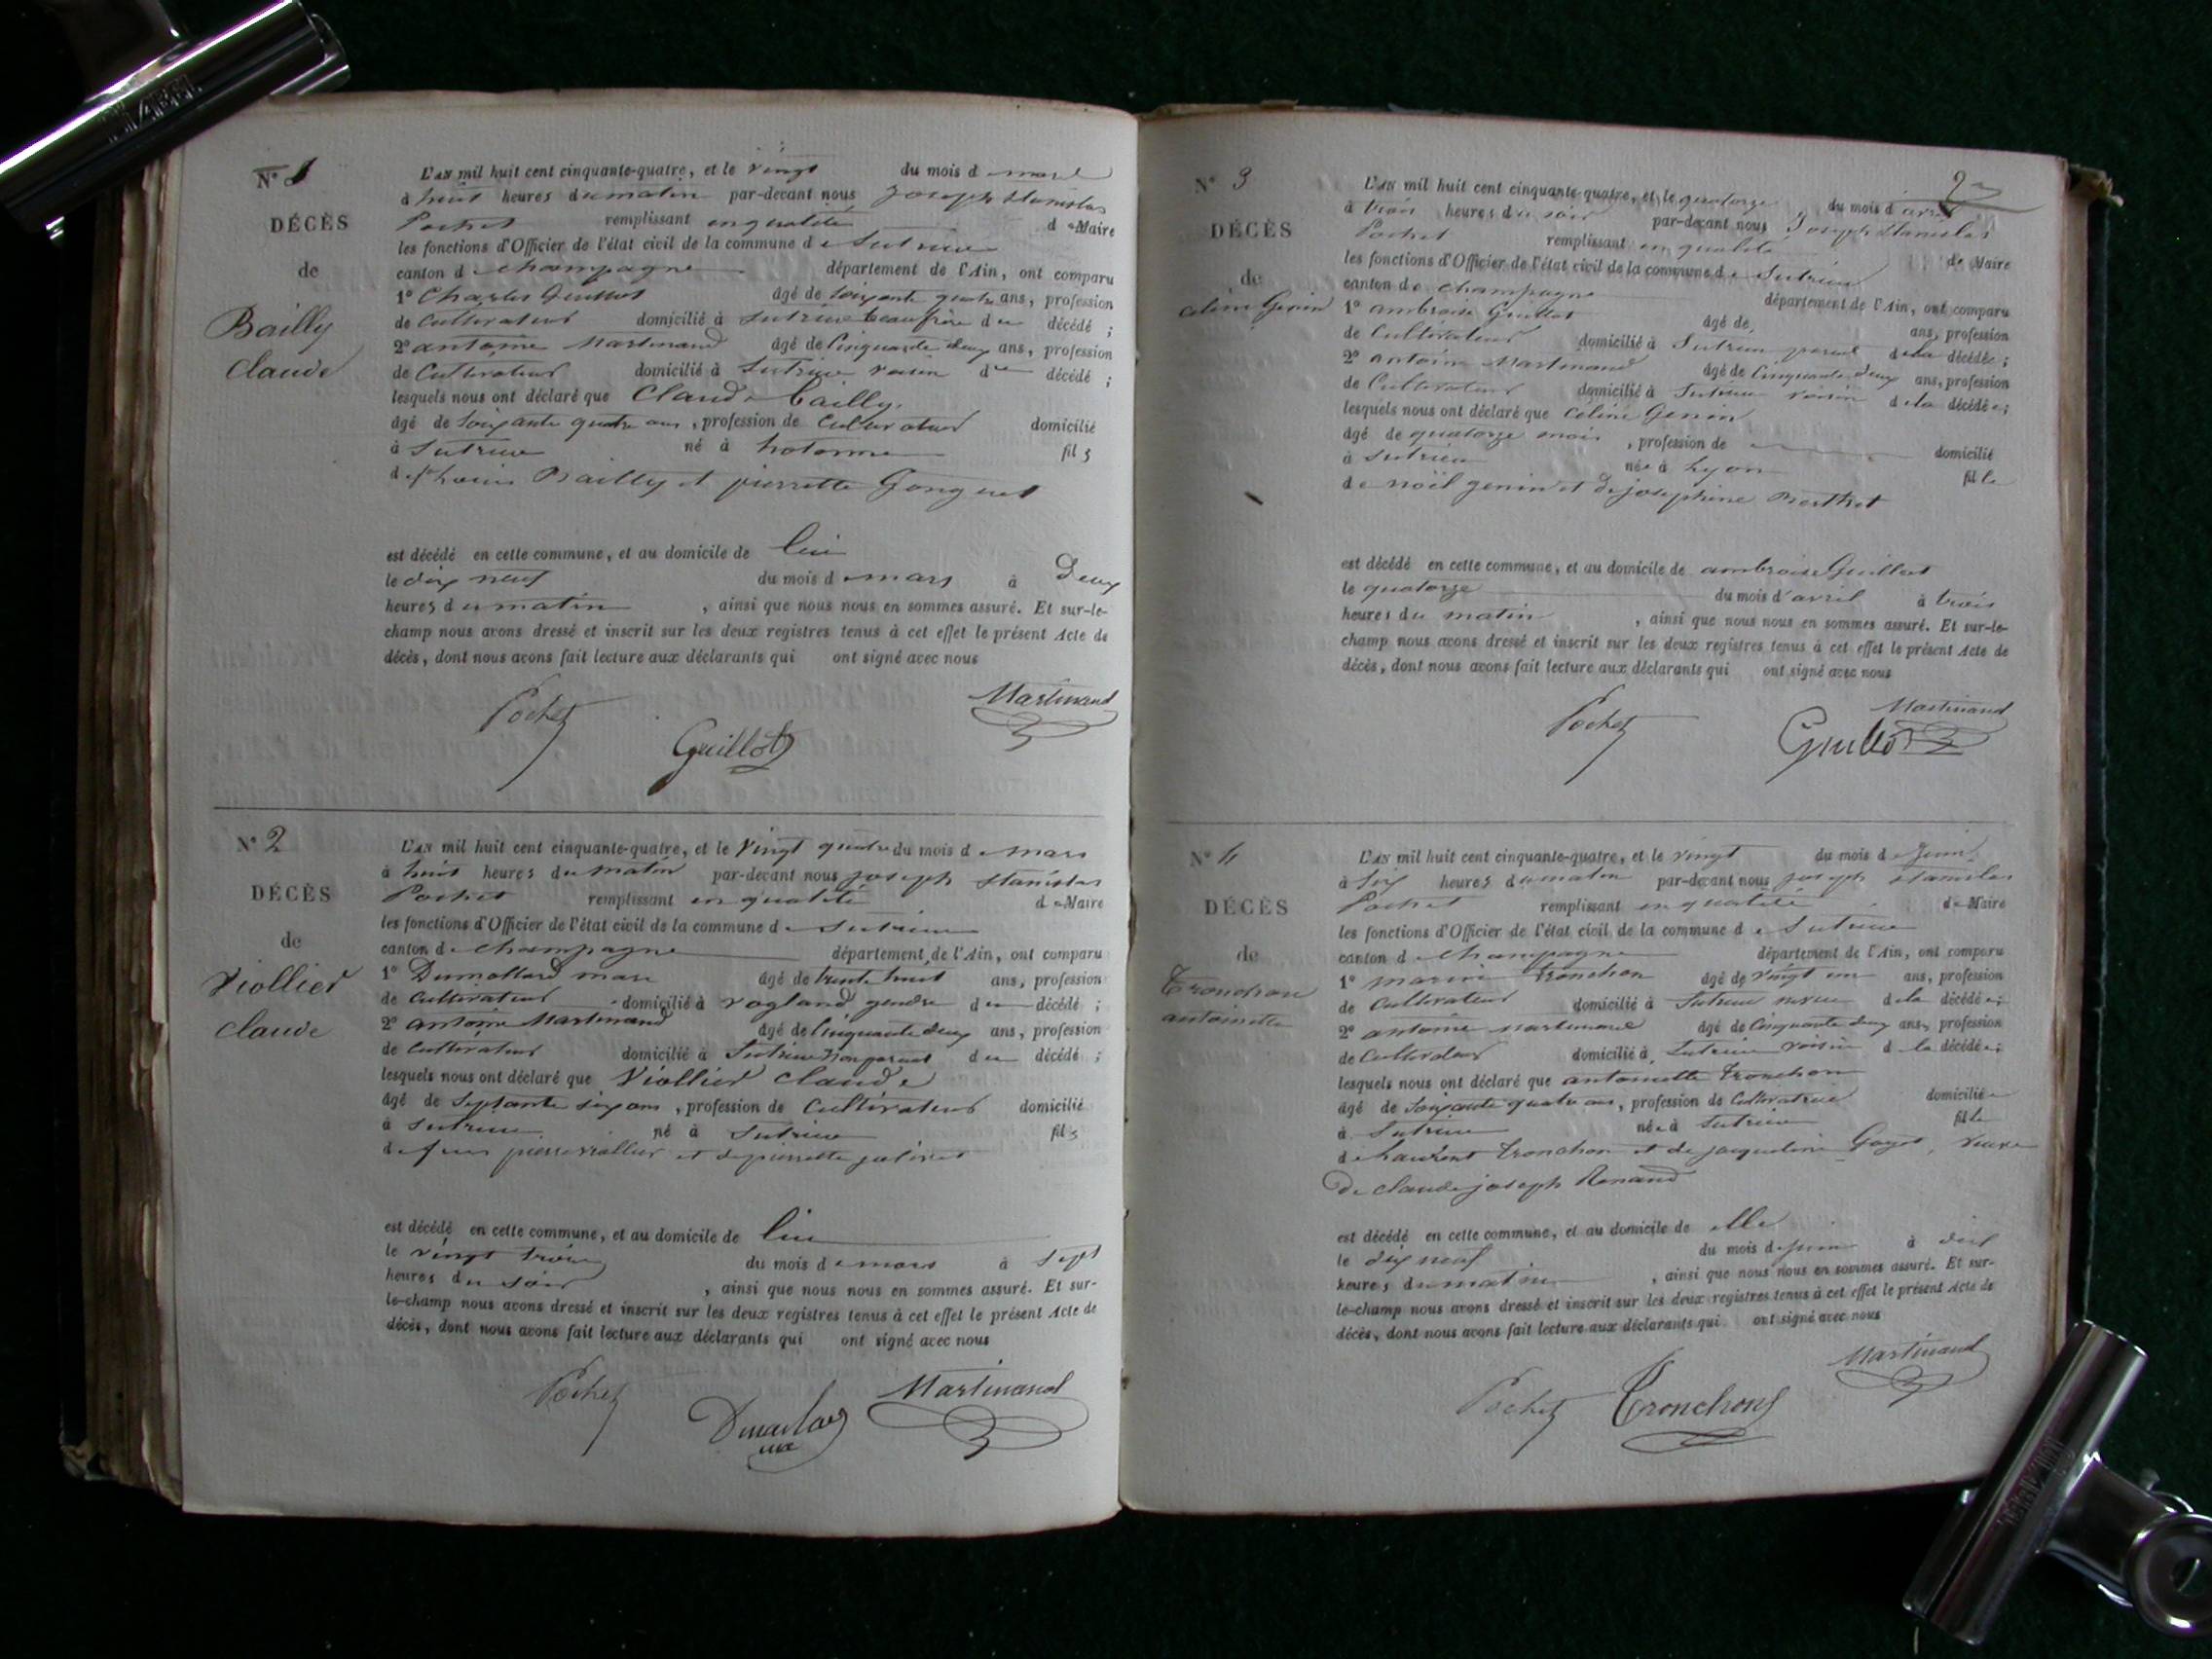 N° 1
DÉCÈS
de
Bailly
Claude
L'AN mil huit cent cinquante-quatre, et le vingt du mois de mars
à huit heures du matin par-devant nous Joseph Stanislas
Pochet remplissant en qualité de Maire
les fonctions d'Officier de l'état civil de la commune de Sutrieu
canton de champagne département de l'Ain, ont comparu
1° Charles Guillot âgé de soixante quatre ans, profession
de Cultivateur domicilié à Sutrieu beaufrère du décédé ;
2° antoine Martinand âgé de Cinquante deux ans, profession
de Cultivateur domicilié à Sutrieu voisin du décédé ;
lesquels nous ont déclaré que Claude bailly
âgé de soixante quatre ans, profession de Cultivateur domicilié
à Sutrieu né à hotonne fils
Bailly et pierrette
est décédé en cette commune, et au domicile de lui
le dix neuf du mois de mars à Deux
heures du matin, ainsi que nous nous en sommes assuré. Et sur-le-
champ nous avons dressé et inscrit sur les deux registres tenus à cet effet le présent Acte de
décès, dont nous avons fait lecture aux déclarants qui ont signé avec nous
Pochet Guillot Martinand
N° 2
DÉCÈS
de
Viollier
claude
L'AN mil huit cent cinquante-quatre, et le Vingt quatre du mois de mars
à huit heures du matin par-devant nous joseph Stanislas
Pochet remplissant en qualité de Maire
les fonctions d'Officier de l'état civil de la commune de Sutrieu
canton de champagne département de l'Ain, ont comparu
1° Dumollard marc âgé de trente huit ans, profession
de Cultivateur domicilié à vogland gendre du décédé ;
2° antoine Martinand âgé de Cinquante deux ans, profession
de Cultivateur domicilié à Sutrieu non parent du décédé ;
lesquels nous ont déclaré que Viollier claude
âgé de Septante six ans, profession de Cultivateur domicilié
à Sutrieu né à Sutrieu fils
de feu pierre viollier et de pierrette
est décédé en cette commune, et au domicile de lui
le vingt trois du mois de mars à sept
heures du soir, ainsi que nous nous en sommes assuré. Et sur-
le-champ nous avons dressé et inscrit sur les deux registres tenus à cet effet le présent Acte de
décès, dont nous avons fait lecture aux déclarants qui ont signé avec nous
Pochet Martinand
2
N° 3
DÉCÈS
de
celine Genin
L'AN mil huit cent cinquante-quatre, et le quatorze du mois d'avril
à trois heures du soir par-devant nous Joseph Stanislas
Pochet remplissant en qualité de Maire
les fonctions d'Officier de l'état civil de la commune de Sutrieu
canton de champagne département de l'Ain, ont comparu
1° ambroise Guillot âgé de ans, profession
de Cultivateur domicilié à Sutrieu parent de la décédée ;
2° antoine Martinand âgé de Cinquante deux ans, profession
de Cultivateur domicilié à Sutrieu voisin de la décédée ;
lesquels nous ont déclaré que celine Genin
âgé de quatorze mois, profession de domicilié
à Sutrieu née à Lyon fille
de noël genin et de josephine Berthet
est décédé en cette commune, et au domicile de ambroise Guillot
le quatorze du mois d'avril à trois
heures du matin, ainsi que nous nous en sommes assuré. Et sur-le-
champ nous avons dressé et inscrit sur les deux registres tenus à cet effet le présent Acte de
décès, dont nous avons fait lecture aux déclarants qui ont signé avec nous
Pochet Guillot Martinand
N° 4
DÉCÈS
de
Tronchon
antoinette
L'AN mil huit cent cinquante-quatre, et le vingt du mois de juin
à six heures du matin par-devant nous joseph Stanislas
Pochet remplissant en qualité de Maire
les fonctions d'Officier de l'état civil de la commune de Sutrieu
canton de champagne département de l'Ain, ont comparu
1° Tronchon âgé de vingt ans, profession
de Cultivateur domicilié à Sutrieu neveu de la décédée ;
2° antoine Martinand âgé de Cinquante deux ans, profession
de Cultivateur domicilié à Sutrieu voisin de la décédée ;
lesquels nous ont déclaré que antoinette tronchon
âgé de Soixante quatre ans, profession de Cultivatrice domiciliée
à Sutrieu née à Sutrieu fille
de Laurent tronchon et de jacqueline Goyet, veuve
De claude joseph Renaud
est décédé en cette commune, et au domicile de elle
le dix neuf du mois de juin à dix
heures du matin, ainsi que nous nous en sommes assuré. Et sur-
le-champ nous avons dressé et inscrit sur les deux registres tenus à cet effet le présent Acte de
décès, dont nous avons fait lecture aux déclarants qui ont signé avec nous
Pochet Tronchon Martinand